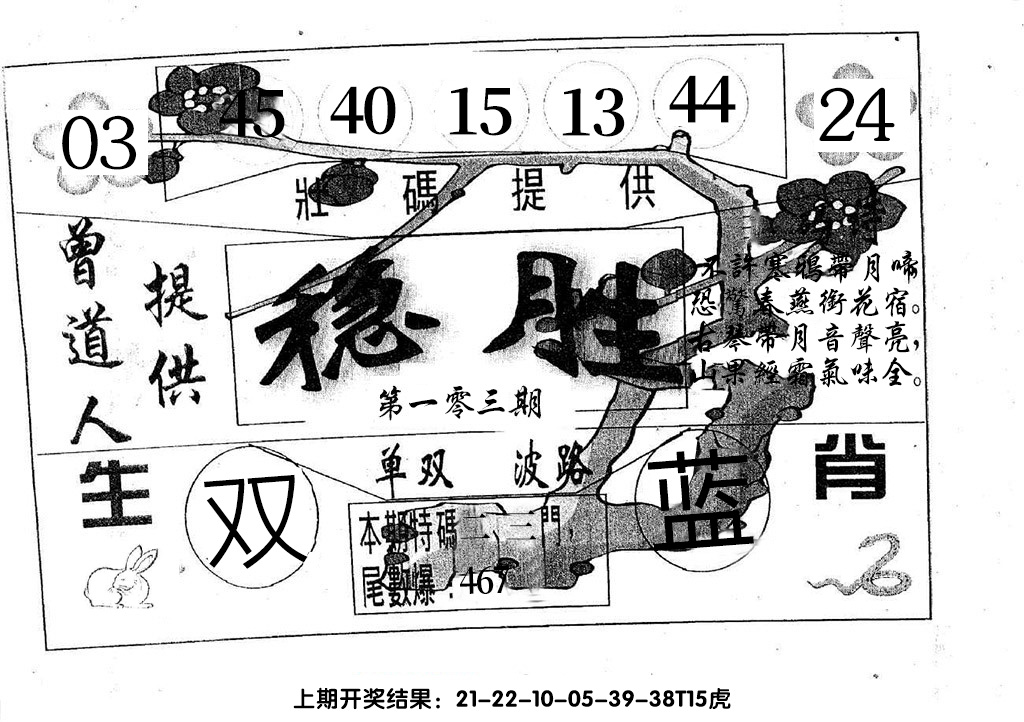 03 45 40 15 13 44 24
壯碼提供
特
曾道人
提供
稳胜
第一零三期
不許寒鴉帶月啼
恐驚春燕銜花宿。
古琴帶月音聲亮，
山果經霜氣味全。
生肖
单双 波路
双
蓝
本期特碼二、三門，
尾數爆：467
上期开奖结果：21-22-10-05-39-38T15虎